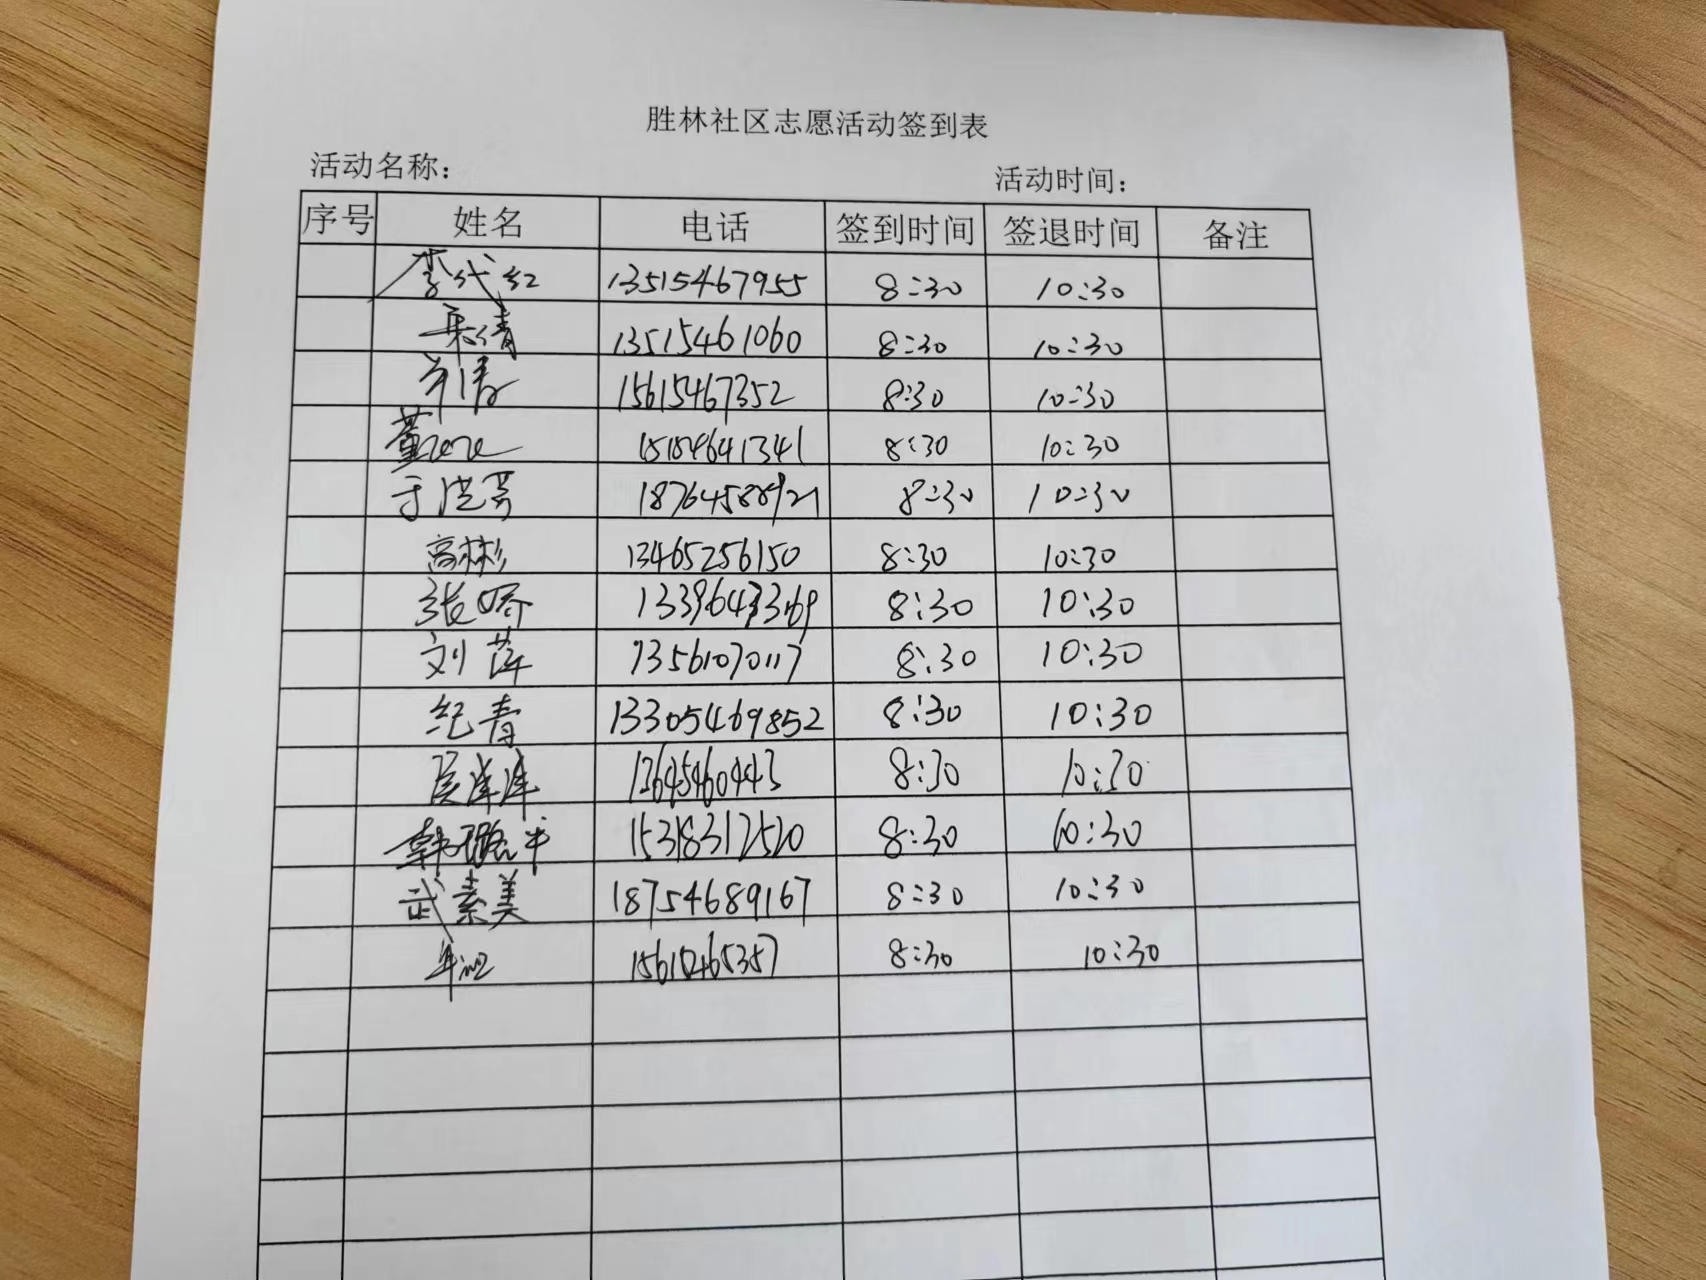 胜林社区志愿活动签到表
活动名称： 活动时间：
序号 姓名 电话 签到时间 签退时间 备注
李代红 13515467955 8:30 10:30
13515461060 8:30 10:30
15615467352 8:30 10:30
董 8:30 10:30
于洪芳 8:30 10:30
高彬彬 13465256150 8:30 10:30
张娇 8:30 10:30
刘萍 13561070117 8:30 10:30
纪青 13305469852 8:30 10:30
13645460443 8:30 10:30
韩璐 15318312520 8:30 10:30
武素美 18754689167 8:30 10:30
15615465357 8:30 10:30